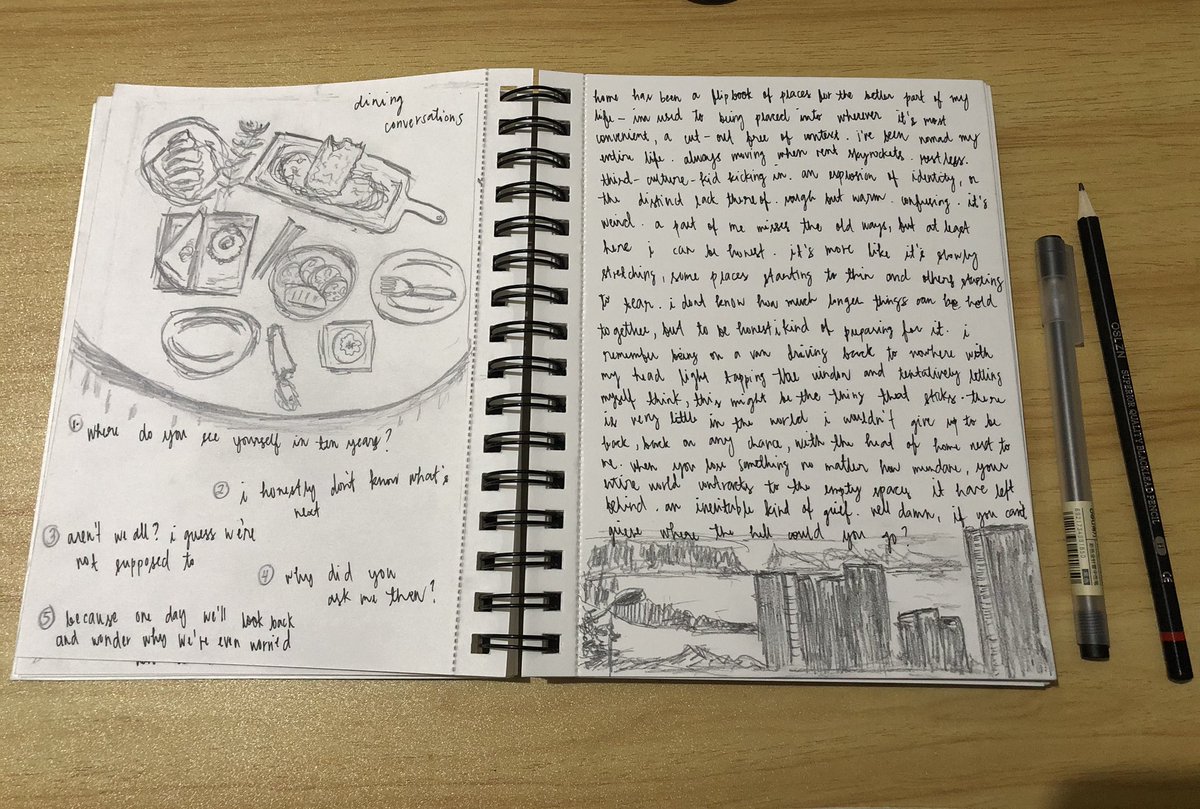 dining
conversations
① where do you see yourself in ten years?
② i honestly don't know what's
next
③ aren't we all? i guess we're
not supposed to
④ why did you
ask me then?
⑤ because one day we'll look back
and wonder why we're even worried
home has been a flipbook of places for the better part of my
life - im used to being placed into wherever it's most
convenient, a cut-out free of context. i've been nomad my
entire life. always moving when rent skyrockets. restless.
third-culture-kid kicking in. an explosion of identity, or
the distinct lack thereof. rough but warm. confusing. it's
weird. a part of me misses the old ways, but at least
here i can be honest. it's more like it's slowly
stretching, some places starting to thin and others starting
to tear. i dont know how much longer things can be held
together, but to be honest i kind of preparing for it. i
remember being on a van driving back to nowhere with
my head light tapping the window and tentatively letting
myself think, this might be the thing that sticks. there
is very little in the world i wouldn't give up to be
back, back on any chance, with the heat of home next to
me. when you lose something no matter how mundane, your
entire world contracts to the empty spaces it have left
behind. an inevitable kind of grief. well damn, if you can't
grieve where the hell could you go?
OSLZN SUPERIOR QUALITY BLACKLEAD PENCIL
CE